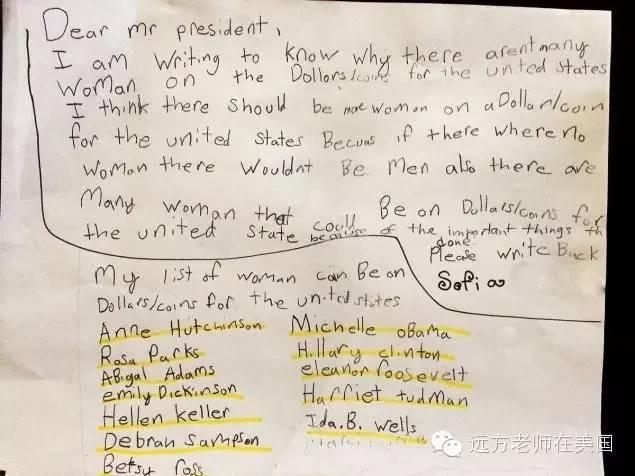 Dear mr president,
I am writing to know why there arent many
woman on the Dollors/coins for the united states
I think there should be more woman on a Dollar/coin
for the united states Becuas if there where no
woman there wouldnt Be Men also there are
Many woman that could Be on Dollars/coins for
the united State because of the important things th
done. Please write Back
Sofia
My list of woman can Be on
Dollars/coins for the united states
Anne Hutchinson
Rosa Parks
Abigal Adams
emily Dickinson
Hellen Keller
Debrah Sampson
Betsy Ross
Michelle obama
Hillary clinton
eleanor roosevelt
Harriet tudman
Ida.B. wells
远方老师在美国